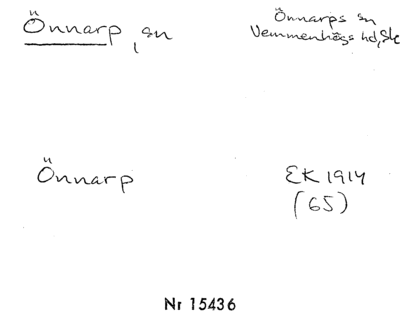 Önnarp, sn
Önnarps sn
Vemmenhögs hd, Sk
Önnarp
EK 1914
(65)
Nr 15436